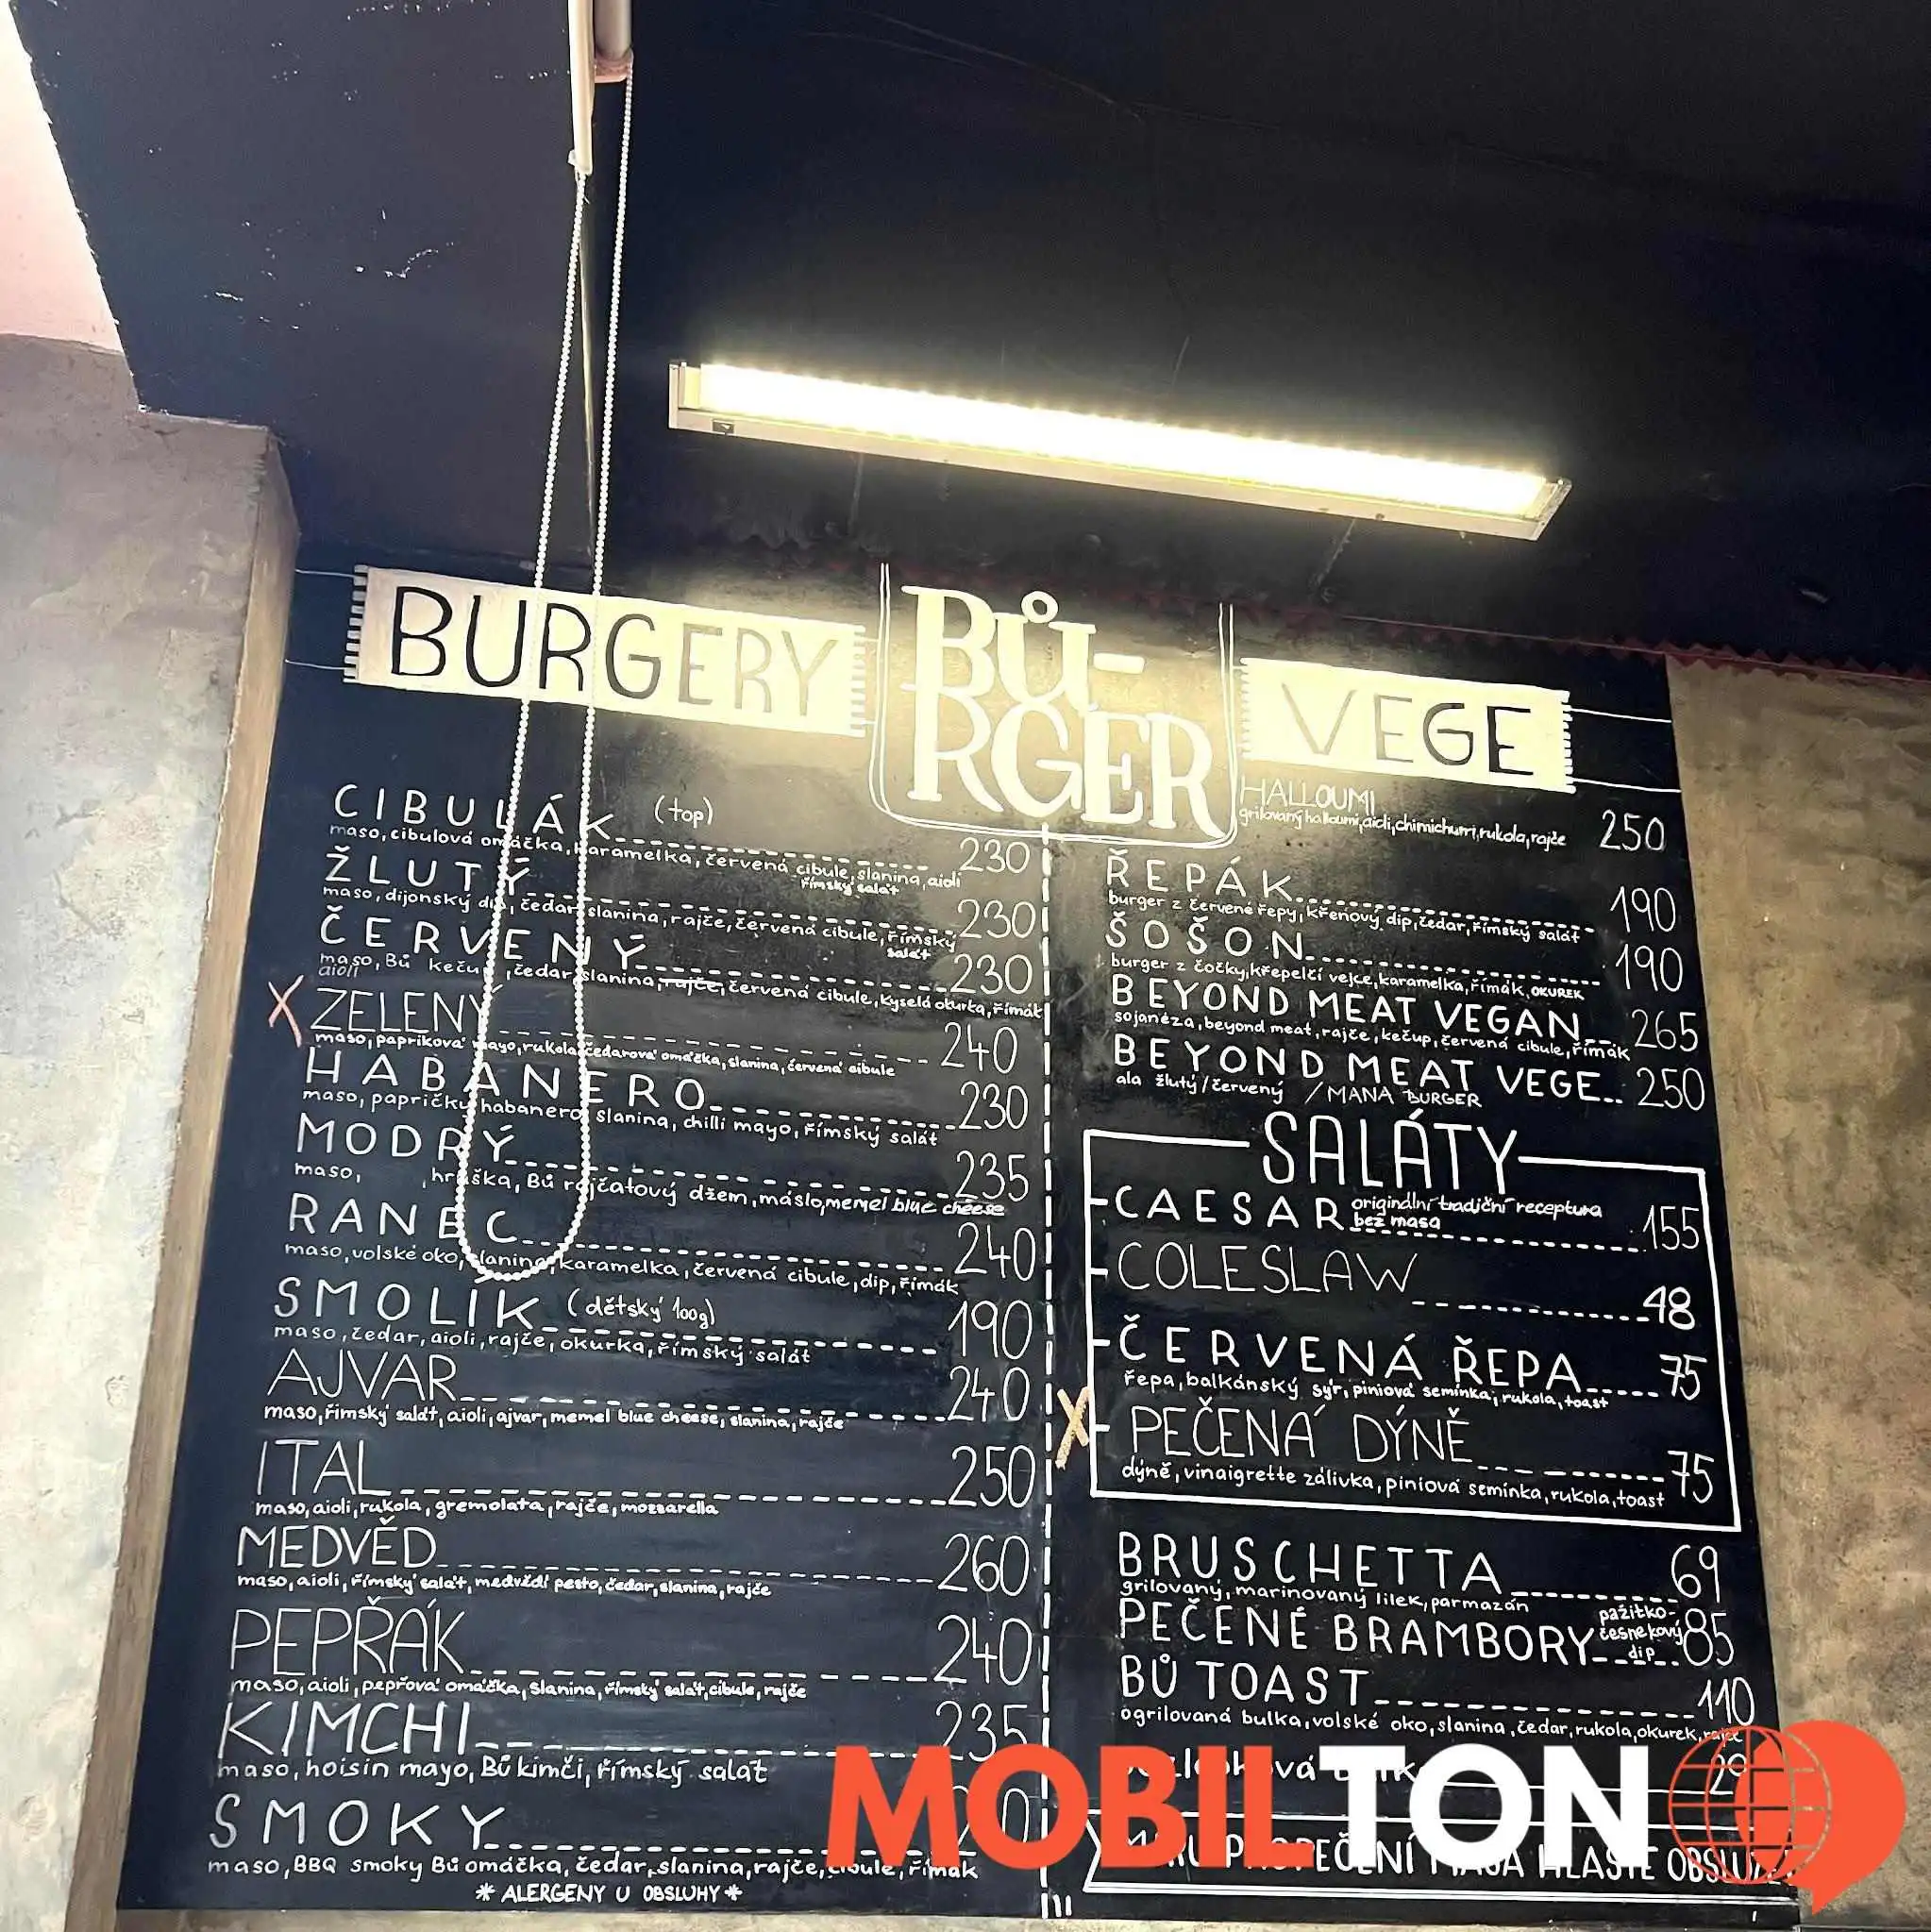 BURGERY
BŮ-
RGER
VEGE
CIBULÁK (top) 230
maso, cibulová omáčka, karamelka, červená cibule, slanina, aioli
římský salát
ŽLUTÝ 230
maso, dijonský dip, čedar, slanina, rajče, červená cibule, římský
salát
ČERVENÝ 230
maso, Bů keču , čedar, slanina, rajče, červená cibule, kyselá okurka, římák
aioli
X ZELENÝ 240
maso, papriková mayo, rukola, čedarová omáčka, slanina, červená cibule
HABANERO 230
maso, papričky habanero, slanina, chilli mayo, římský salát
MODRÝ 235
maso, , hruška, Bů rajčatový džem, máslo, memel blue cheese
RANEC 240
maso, volské oko, slanina, karamelka, červená cibule, dip, římák
SMOLÍK (dětský 100g) 190
maso, čedar, aioli, rajče, okurka, římský salát
AJVAR 240
maso, římský salát, aioli, ajvar, memel blue cheese, slanina, rajče
ITAL 250
maso, aioli, rukola, gremolata, rajče, mozzarella
MEDVĚD 260
maso, aioli, římský salát, medvědí pesto, čedar, slanina, rajče
PEPŘÁK 240
maso, aioli, pepřová omáčka, slanina, římský salát, cibule, rajče
KIMCHI 235
maso, hoisin mayo, Bů kimči, římský salát
SMOKY
maso, BBQ smoky Bů omáčka, čedar, slanina, rajče, cibule, římák
* ALERGENY U OBSLUHY *
HALLOUMI 250
grilovaný halloumi, aioli, chimichurri, rukola, rajče
ŘEPÁK 190
burger z červené řepy, křenový dip, čedar, římský salát
ŠOŠON 190
burger z čočky, křepelčí vejce, karamelka, římák, OKUREK
BEYOND MEAT VEGAN 265
sojanéza, beyond meat, rajče, kečup, červená cibule, římák
BEYOND MEAT VEGE 250
ala žlutý/červený / MANA BURGER
SALÁTY
CAESAR originální tradiční receptura 155
bez masa
COLESLAW 48
ČERVENÁ ŘEPA 75
řepa, balkánský sýr, piniová semínka, rukola, toast
X PEČENÁ DÝNĚ 75
dýně, vinaigrette zálivka, piniová semínka, rukola, toast
BRUSCHETTA 69
grilovaný, marinovaný lilek, parmazán
PEČENÉ BRAMBORY pažitko-česnekový dip 85
BŮ TOAST 110
ogrilovaná bulka, volské oko, slanina, čedar, rukola, okurek, rajče
PEČENÍ MASA HLASTE OBSLUZE
MOBILTON